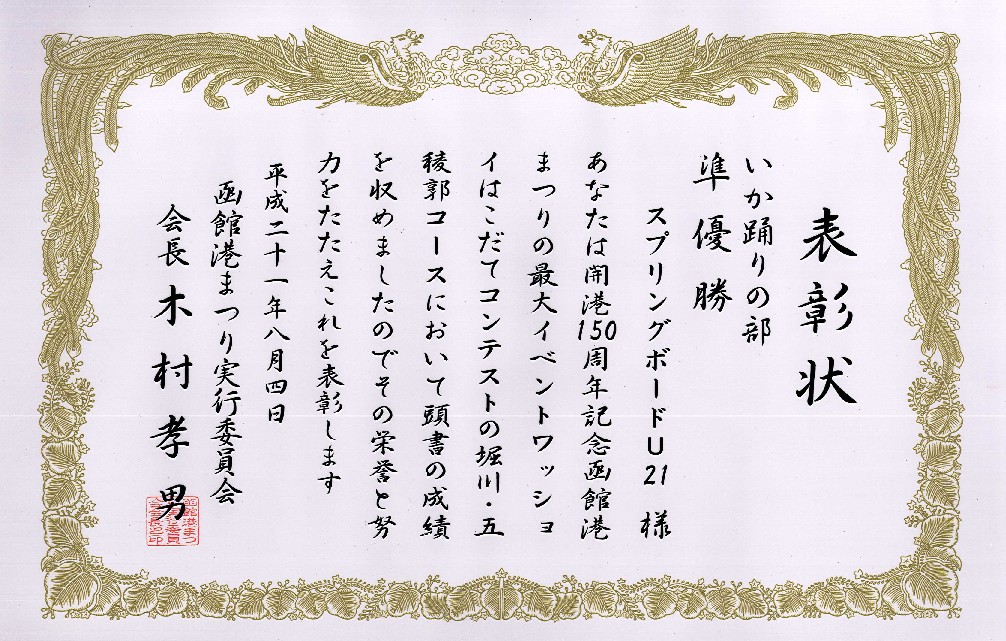 表彰状
いか踊りの部
準優勝
スプリングボードU21 様
あなたは開港150周年記念函館港
まつりの最大イベントワッショ
イはこだてコンテストの堀川・五
稜郭コースにおいて頭書の成績
を収めましたのでその栄誉と努
力をたたえこれを表彰します
平成二十一年八月四日
函館港まつり実行委員会
会長 木村孝男